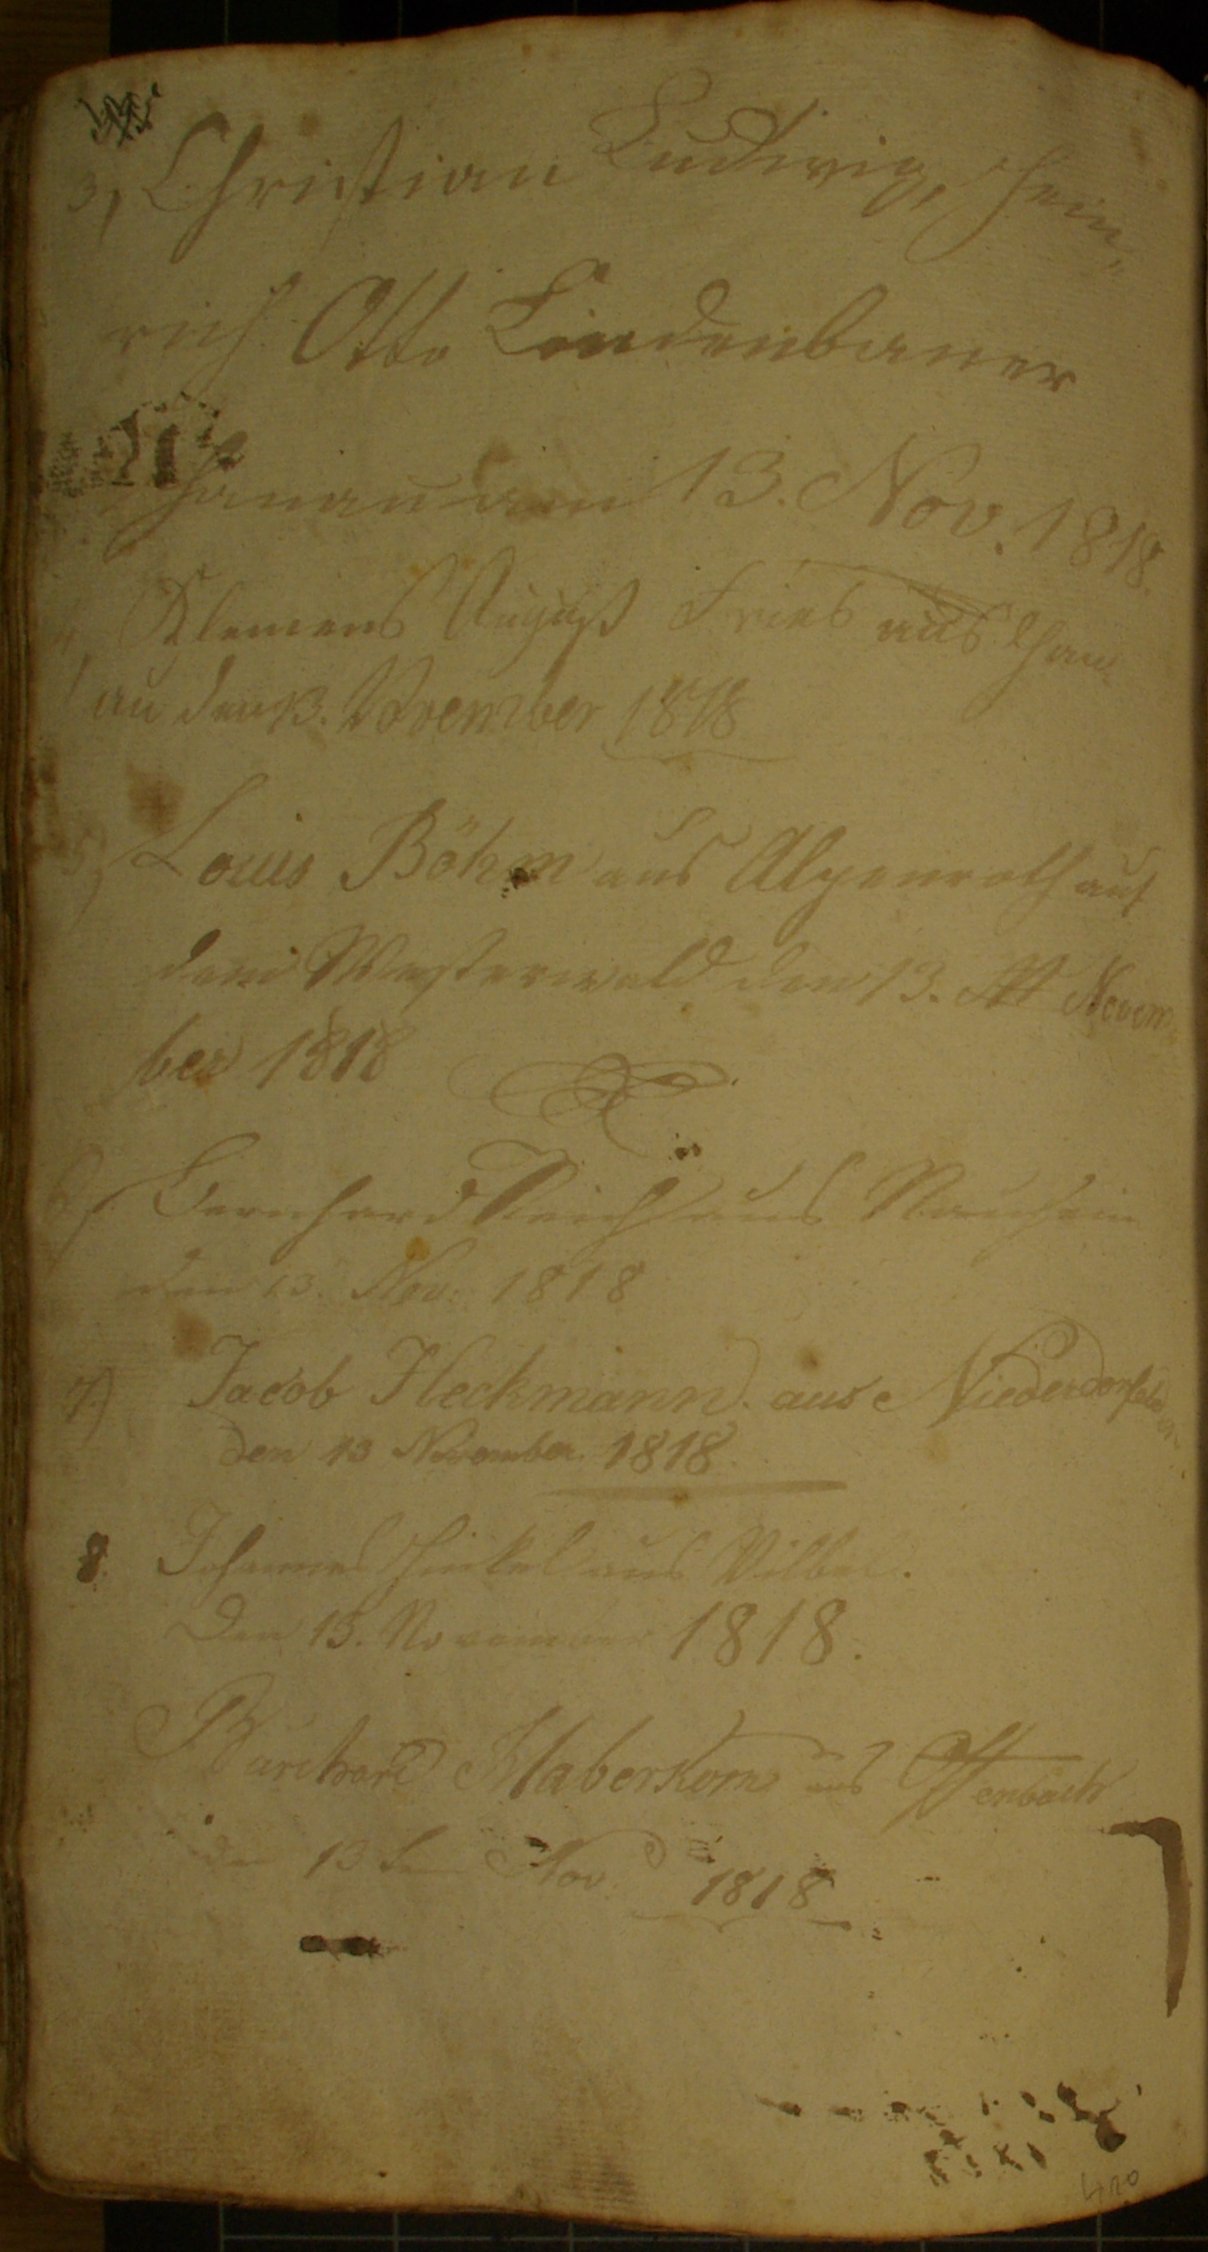 3) Christian Ludwig, Hein-
rich Otto Lindenbauer
Hanau den 13. Nov. 1818.
4) Klemens August Fries aus Han
au den 13. November 1818
5) Louis Böhm aus Alpenroth auf
dem Westerwald den 13. Novem
ber 1818
6) Bernhard Reich aus Nauheim
den 13. Nov. 1818
7.) Jacob Heckmann. aus Niederdorfelden
den 13 November 1818.
8. Johannes Hinkel aus Vilbel.
Den 13. November 1818.
Burchard Haberkorn aus Offenbach
den 13ten Nov. 1818
420